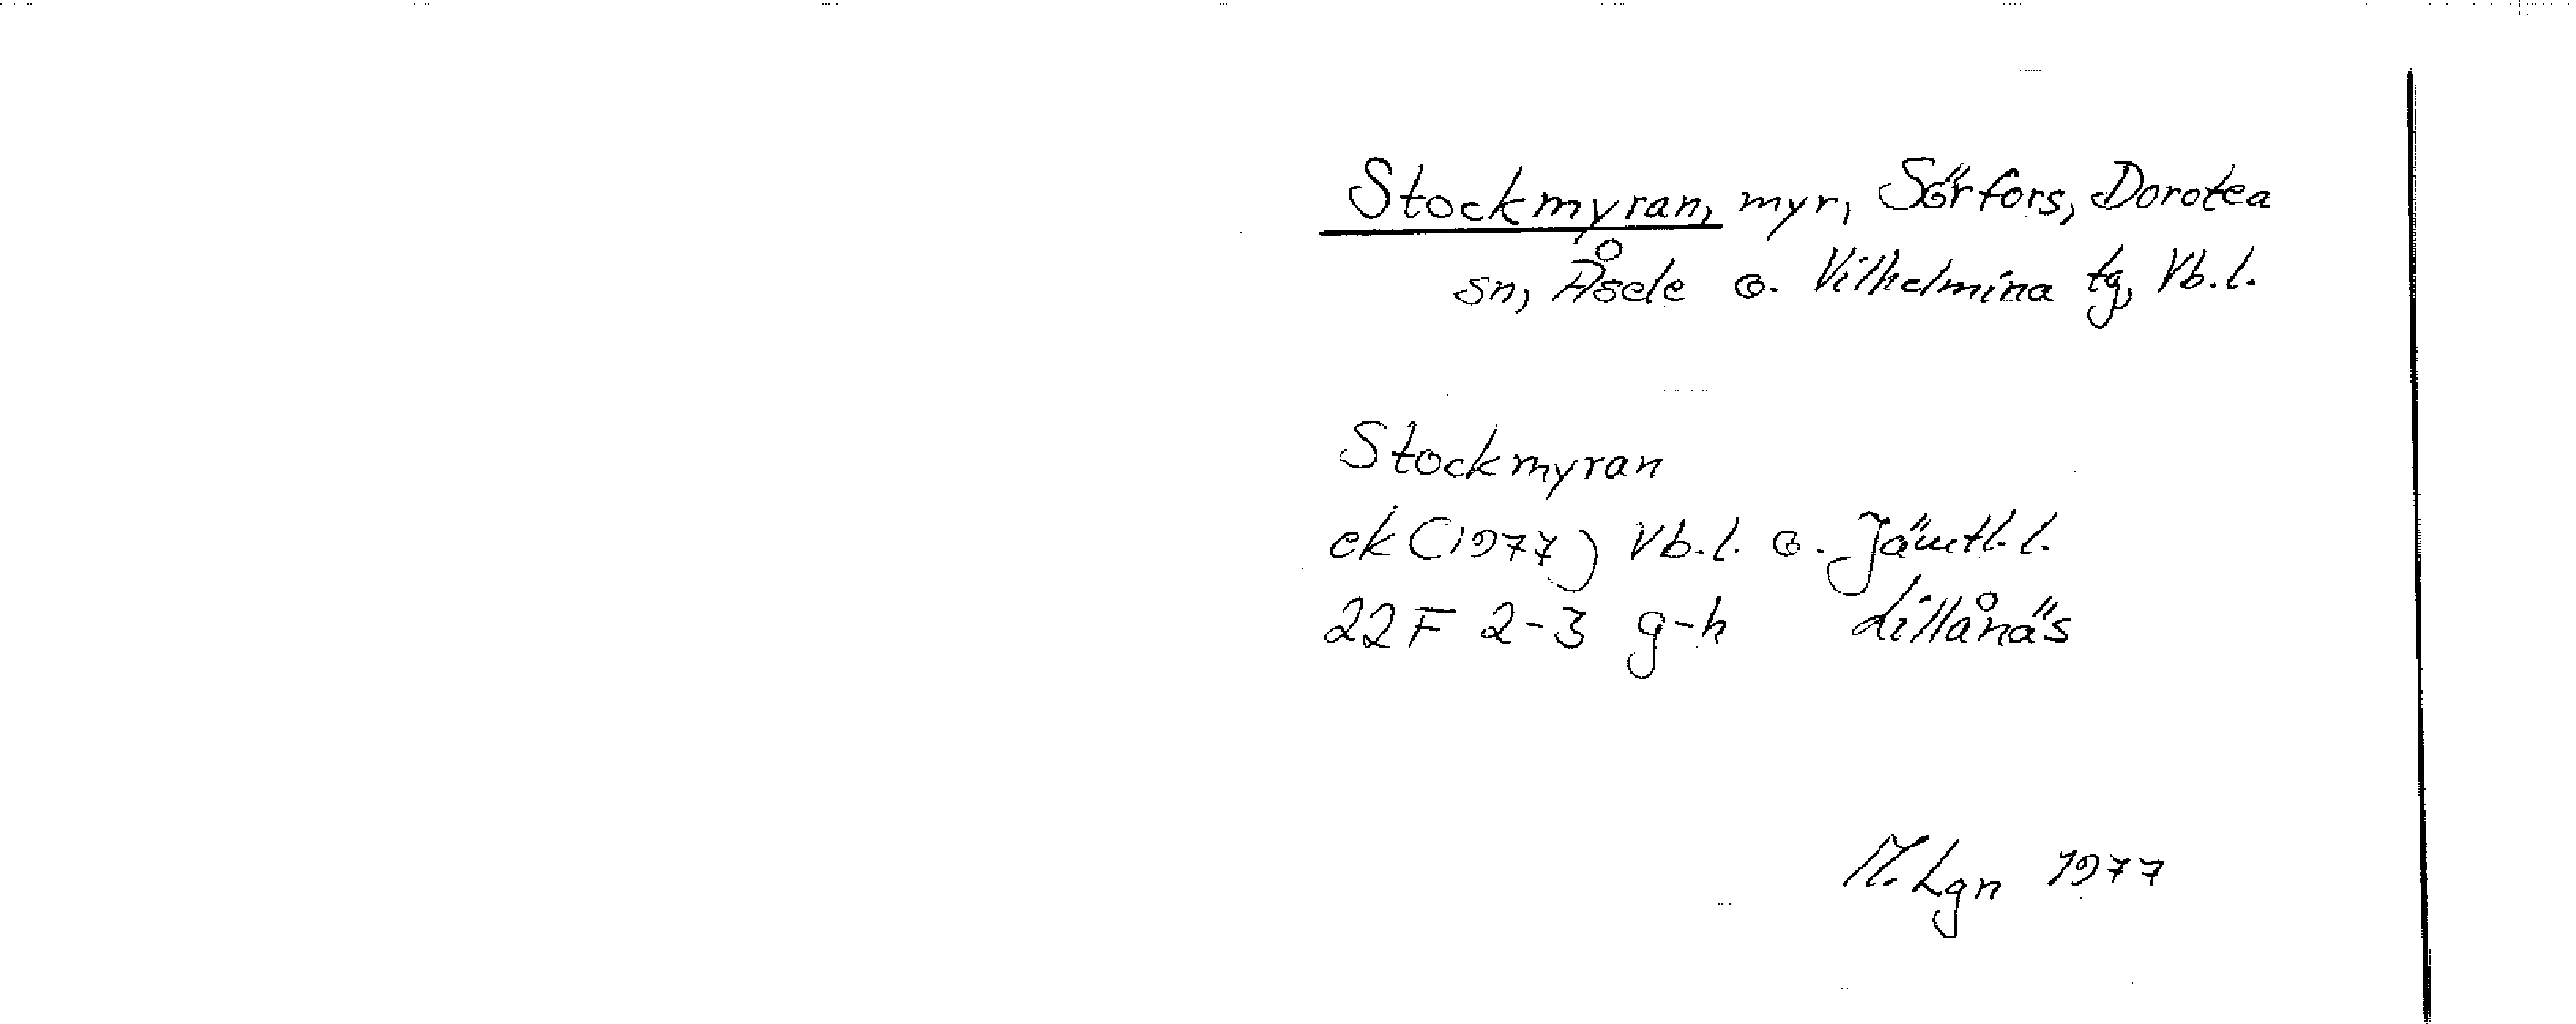 Stockmyran, myr, Sörfors, Dorotea
sn, Åsele o. Vilhelmina tg, Vb.l.
Stockmyran
ek (1977) Vb.l. o. Jämtl.l.
22F 2-3 g-h Lillånäs
M. Lgn 1977